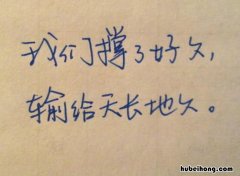 我们撑了好久，
输给天长地久。
hubeihong.com